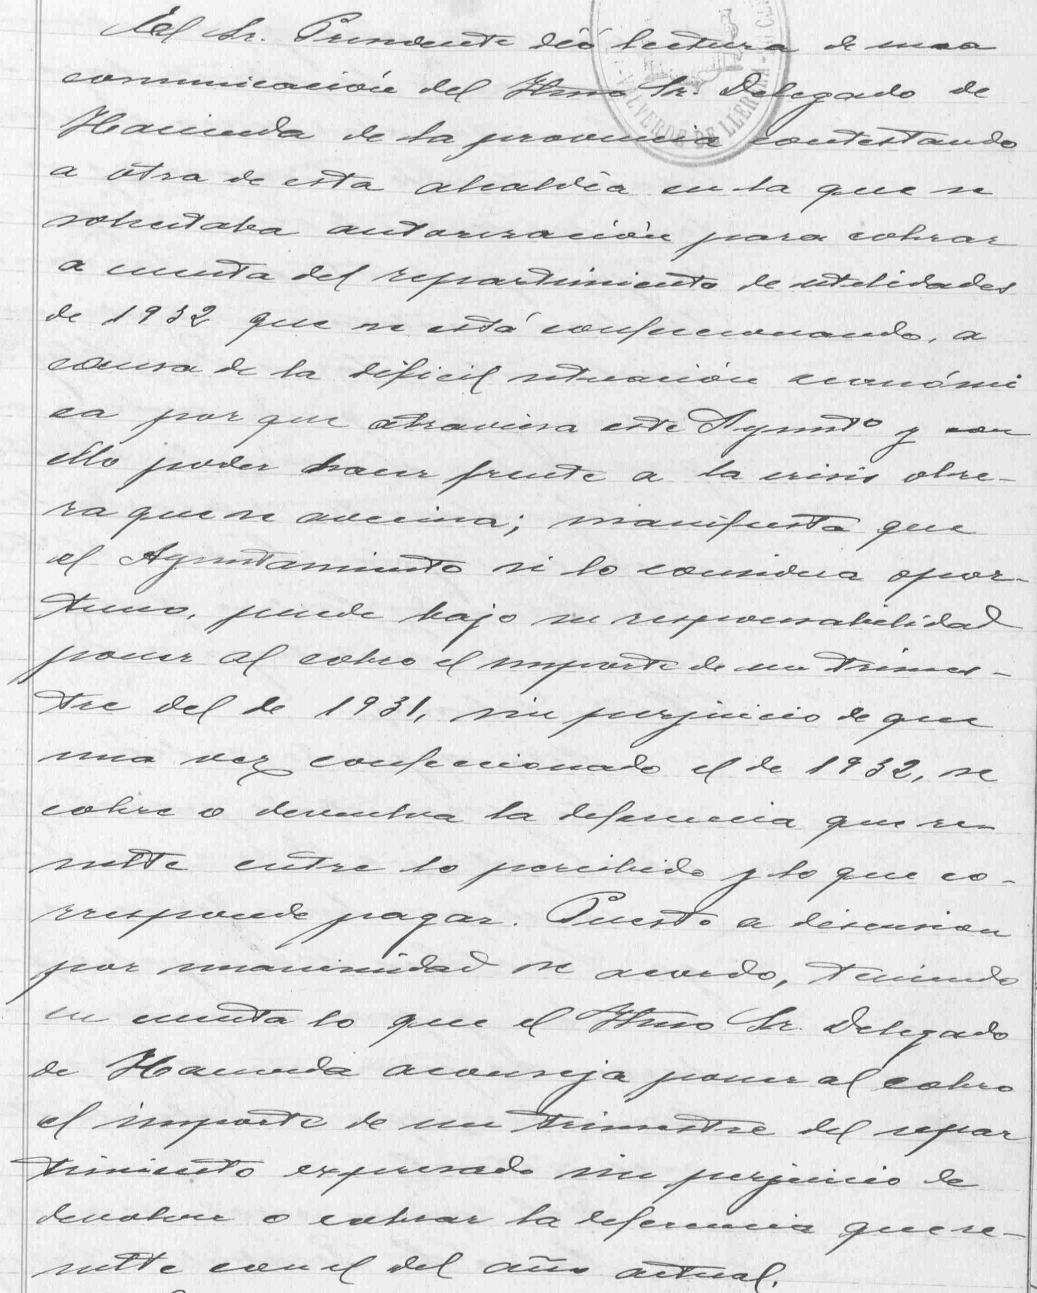 El Sr. Presidente dió lectura de una
comunicación del Iltmo Sr. Delegado de
Hacienda de la provincia contestando
a otra de esta alcaldía en la que se
solicitaba autorización para cobrar
a cuenta del repartimiento de utilidades
de 1932 que se está confeccionando, a
causa de la dificil situación económi
ca por que atraviesa este Aynmtº y con
ello poder hacer frente a la crisis obre-
ra que se avecina; manifiesta que
el Ayuntamiento si lo considera opor-
tuno, puede bajo su responsabilidad
poner al cobro el importe de un trimes-
tre del de 1931, sin perjuicio de que
una vez confeccionado el de 1932, se
cobre o devuelva la diferencia que re-
sulte entre lo percibido y lo que co-
rresponde pagar. Puesto a discusion
por unanimidad se acordo, teniendo
en cuenta lo que el Iltmo Sr. Delegado
de Hacienda aconseja poner al cobro
el importe de un trimestre del repar
timiento expresado sin perjuicio de
devolver o cobrar la diferencia que re-
sulte con el del año actual.
VERDE DE LLERENA